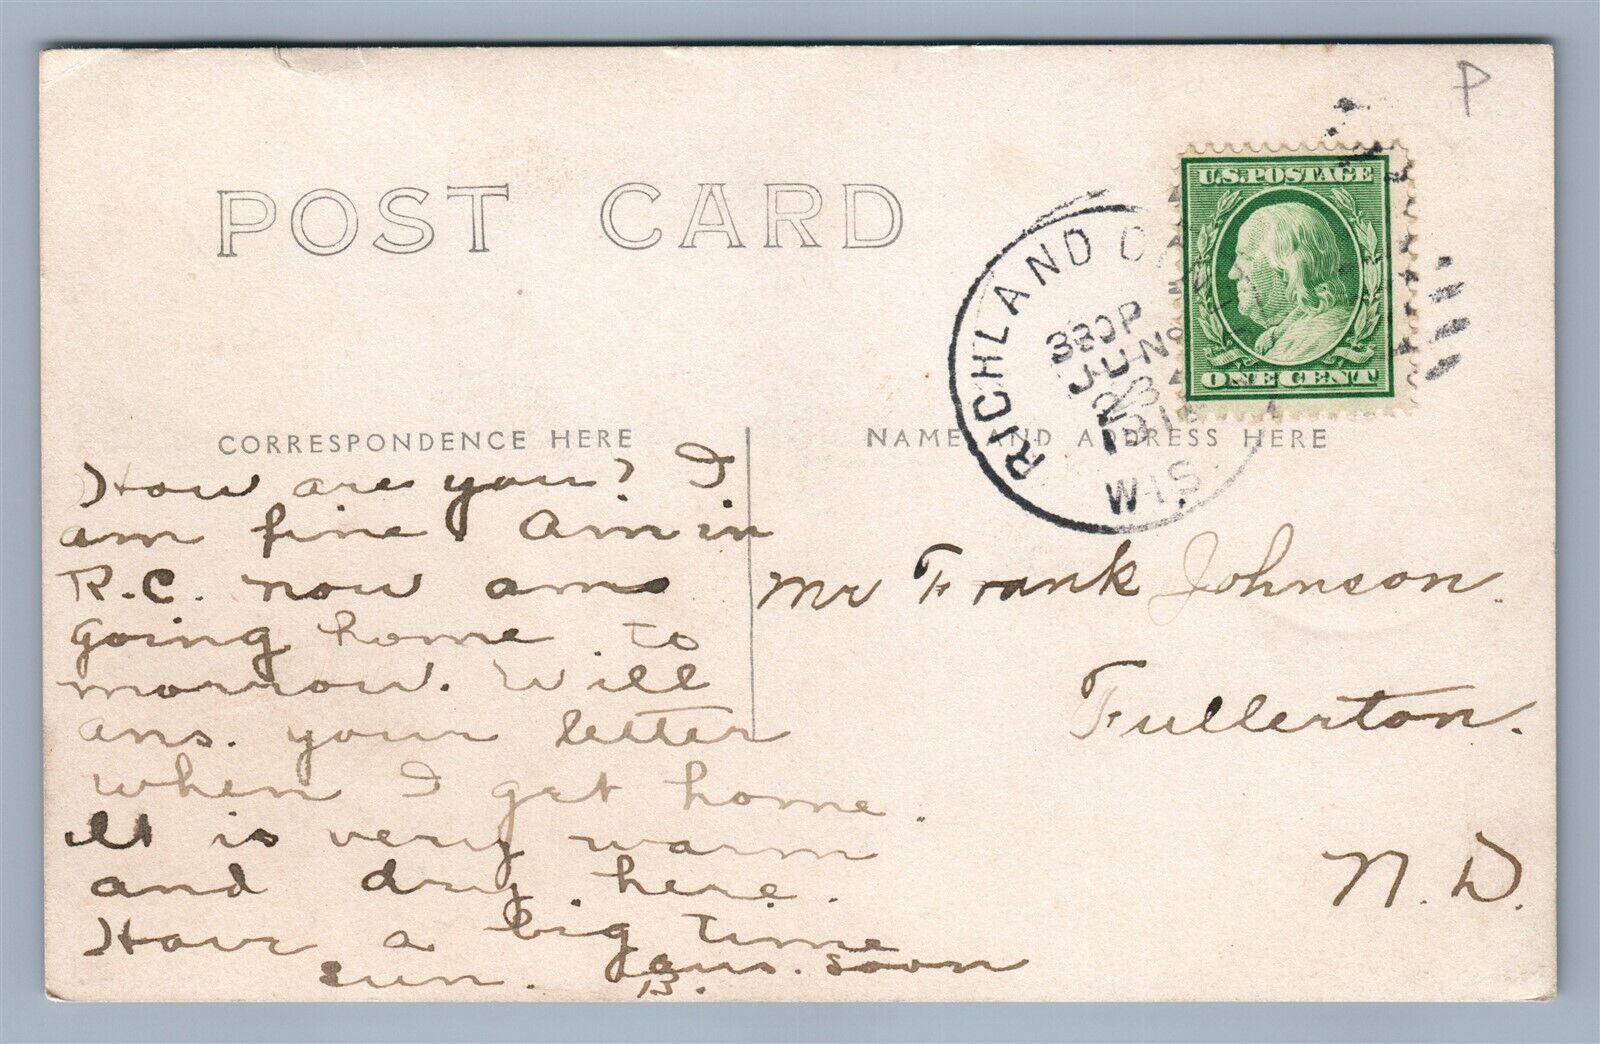 P
POST CARD
U.S.POSTAGE
ONE CENT
RICHLAND
330P
JUN
23
WIS.
CORRESPONDENCE HERE
NAME AND ADDRESS HERE
How are you? I
am fine. Am in
R.C. now am
going home to
morrow. Will
ans. your letter
when I get home.
It is very warm
and dry here.
Have a big time
sun. ans. soon
B.
Mr Frank Johnson.
Fullerton.
N.D.